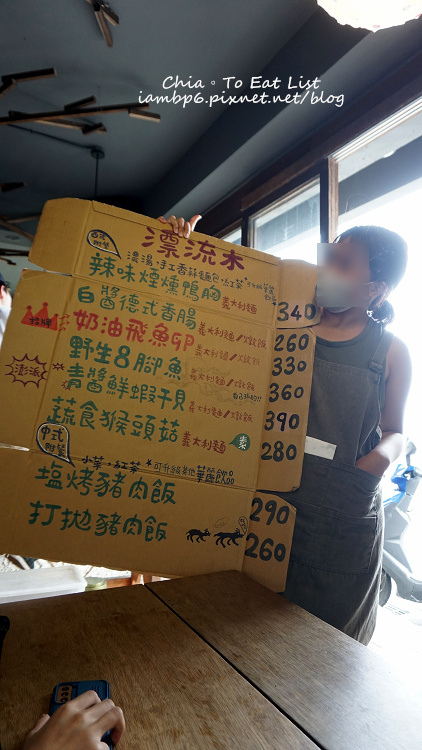 Chia。To Eat List
iambp6.pixnet.net/blog
漂流木
西式附餐
濃湯·手工香蒜麵包·紅茶
辣味煙燻鴨胸 義大利麵 340
白醬德式香腸 義大利麵/燉飯 260
招牌 奶油飛魚卵 義大利麵/燉飯 330
澎派 野生8腳魚 義大利麵/燉飯 360
青醬鮮蝦干貝 義大利麵/燉飯 390
蔬食猴頭菇 義大利麵 素 280
中式附餐
小菜·紅茶 *可升級其他單飲
塩烤豬肉飯 290
打拋豬肉飯 260